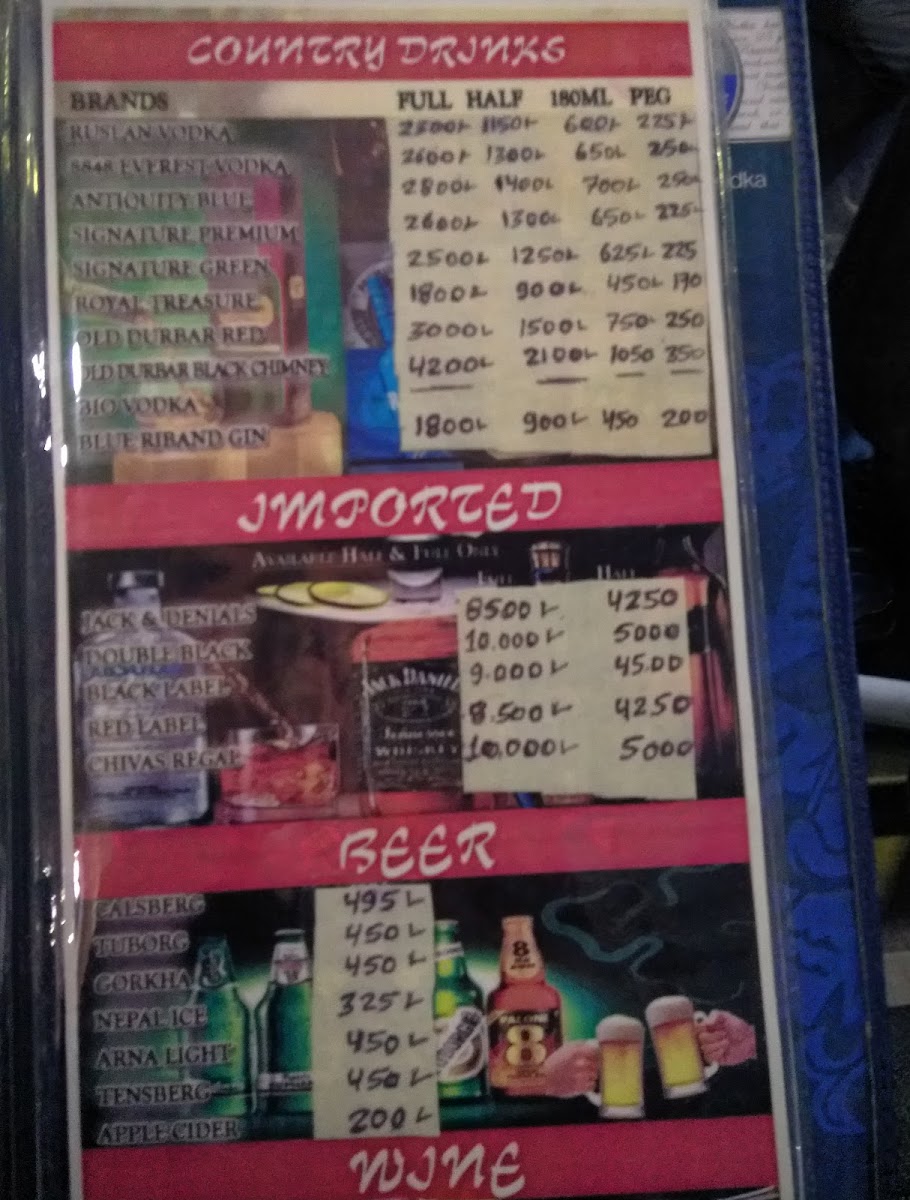 COUNTRY DRINKS
BRANDS FULL HALF 180ML PEG
RUSLAN VODKA 2300/- 1150/- 600/- 225/-
8848 EVEREST VODKA 2600/- 1300/- 650/- 250/-
ANTIQUITY BLUE 2800/- 1400/- 700/- 250/-
SIGNATURE PREMIUM 2600/- 1300/- 650/- 225/-
SIGNATURE GREEN 2500/- 1250/- 625/- 225
ROYAL TREASURE 1800/- 900/- 450/- 170
OLD DURBAR RED 3000/- 1500/- 750- 250
OLD DURBAR BLACK CHIMNEY 4200/- 2100/- 1050 350
BIO VODKA — — — —
BLUE RIBAND GIN 1800/- 900/- 450 200
IMPORTED
AVAILABLE HALF & FULL ONLY
FULL HALF
JACK & DENIALS 8500/- 4250
DOUBLE BLACK 10.000/- 5000
BLACK LABEL 9.000/- 45.00
RED LABEL 8.500/- 4250
CHIVAS REGAL 10.000/- 5000
JACK DANIEL
WHISKEY
BEER
CALSBERG 495/-
TUBORG 450/-
GORKHA 450/-
NEPAL ICE 325/-
ARNA LIGHT 450/-
TENSBERG 450/-
APPLE CIDER 200/-
8
8
WINE
dka